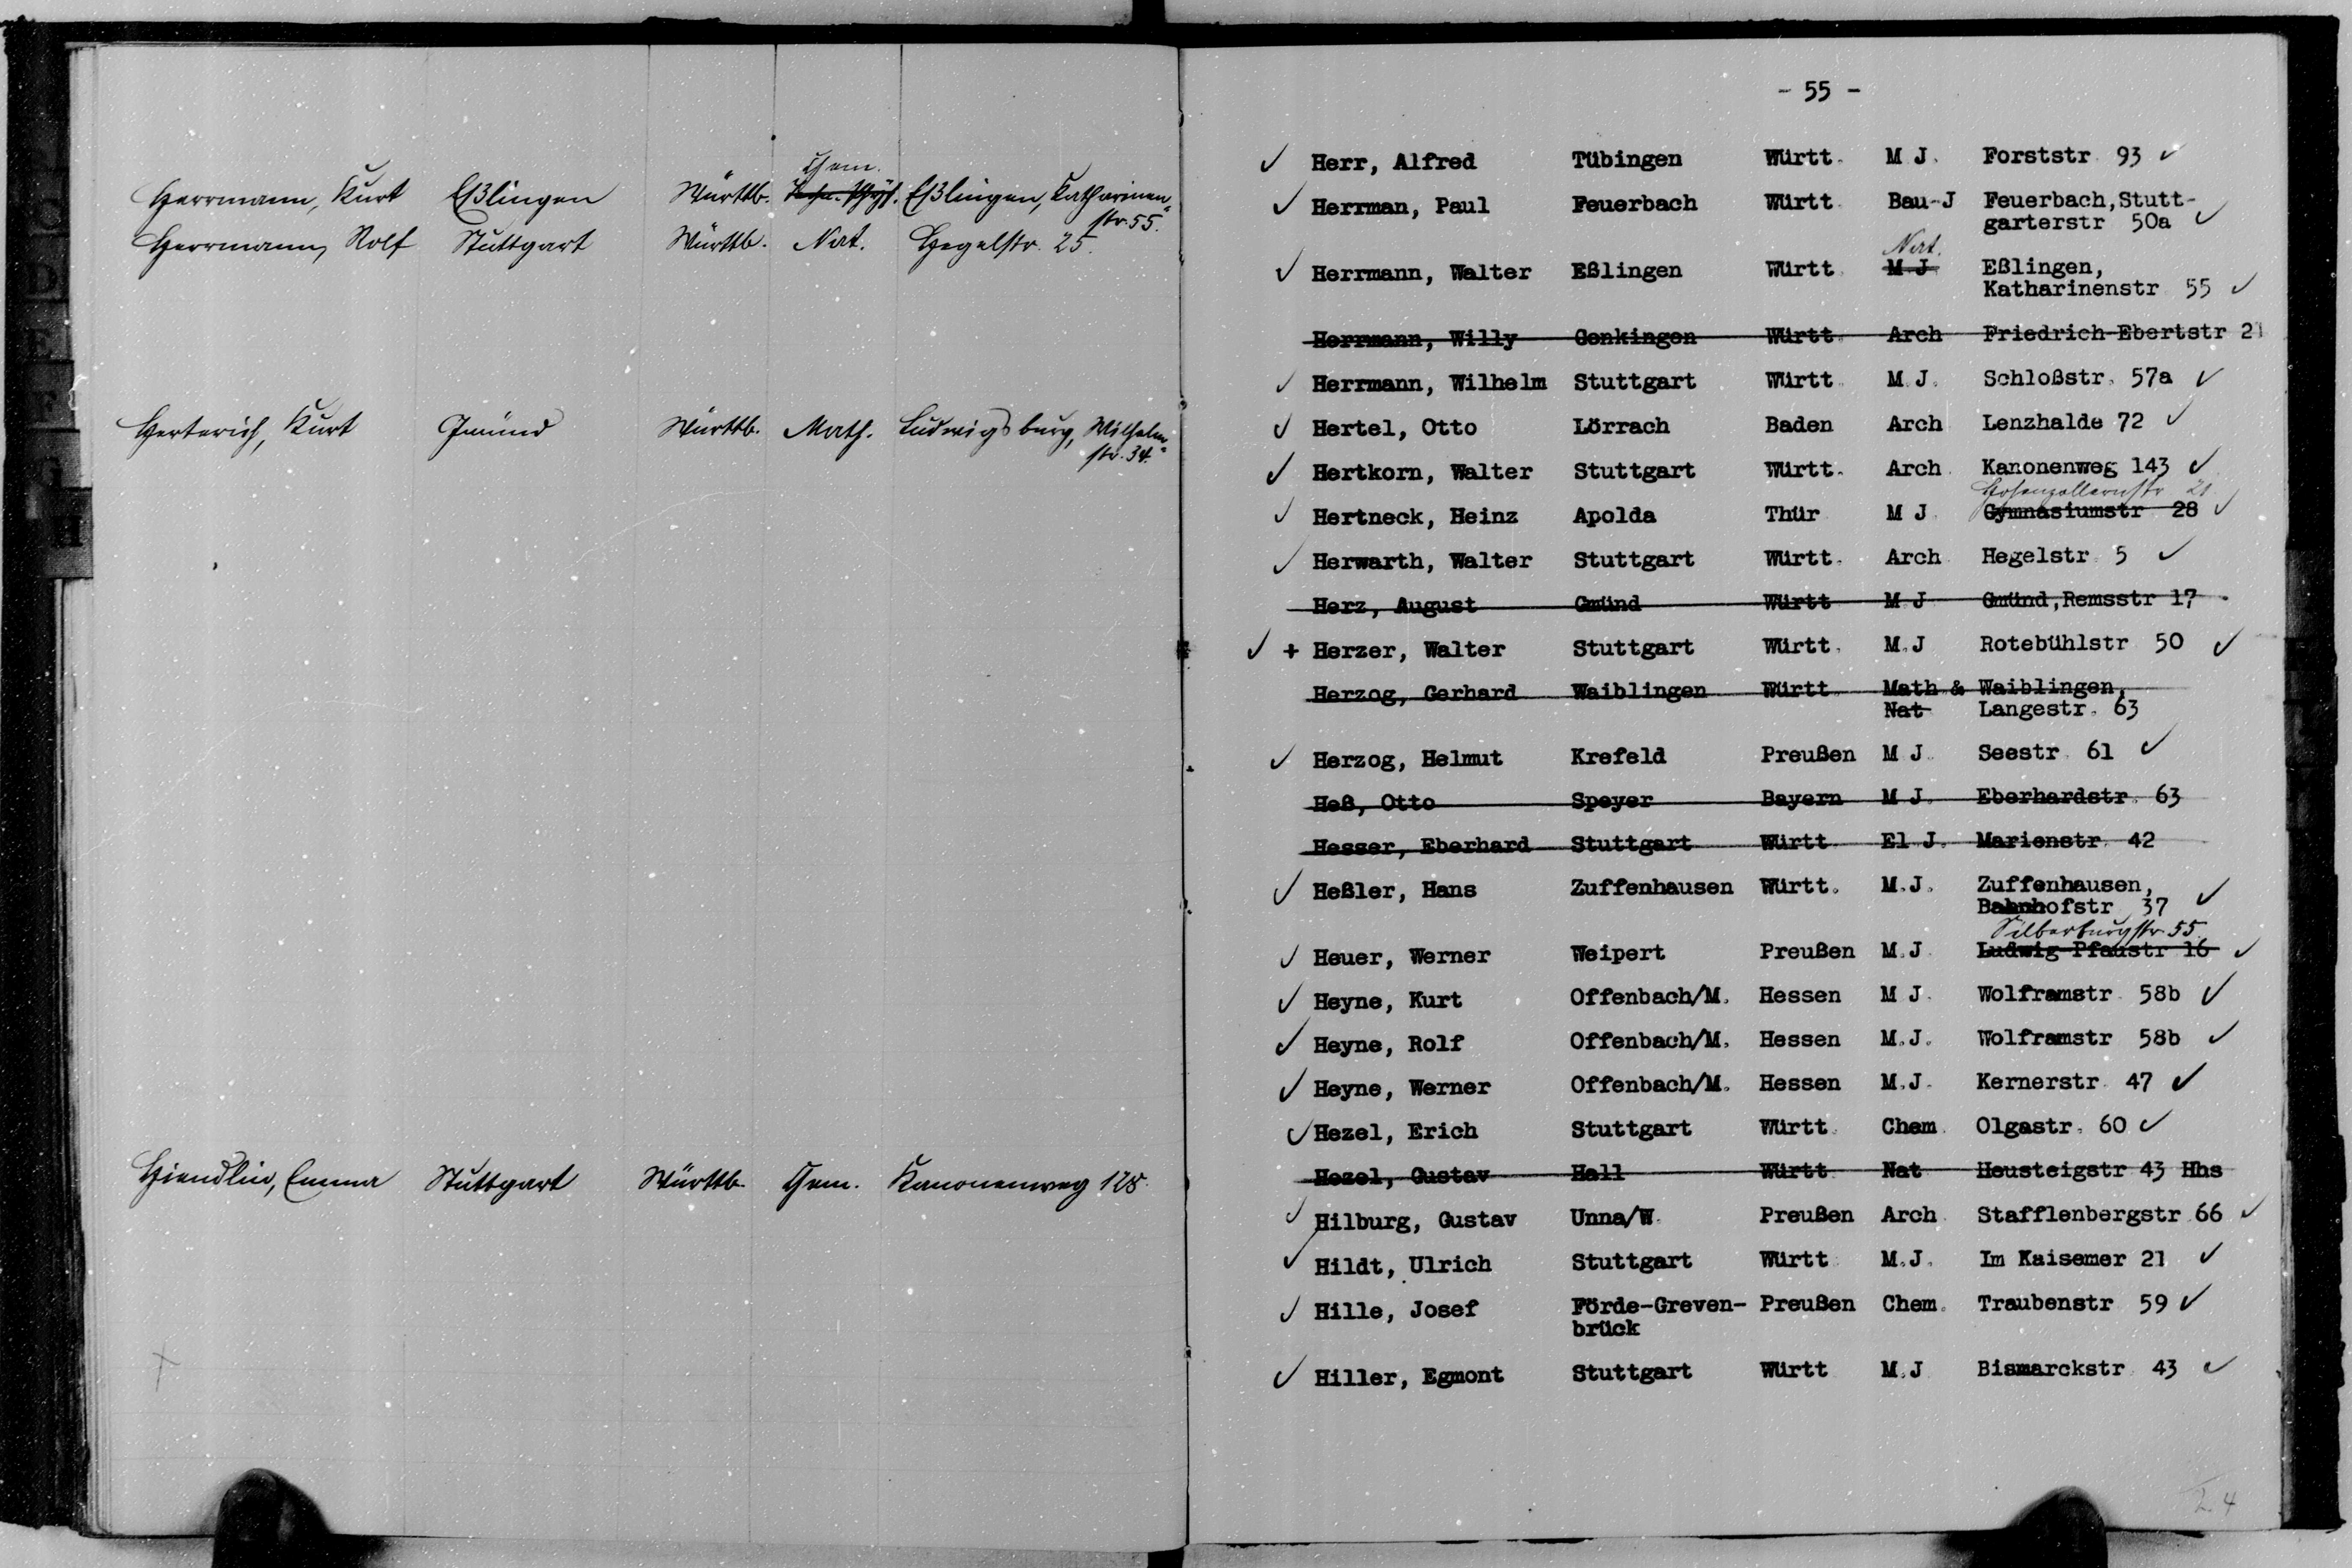 Chem.
Herrmann, Kurt Eßlingen Württb. Eßlingen, Katharinen-
str. 55.
Herrmann, Rolf Stuttgart Württb. Nat. Hegelstr. 25.
Herterich, Kurt Gmünd Württb. Math. Ludwigsburg, Wilhelm-
str. 34.
Hiendlin, Emma Stuttgart Württb. Chem. Kanonenweg 128.
D
E
F
G
H
- 55 -
Herr, Alfred Tübingen Württ. M J. Forststr 93
Herrman, Paul Feuerbach Württ Bau-J Feuerbach, Stutt-
garterstr 50a
Nat.
Herrmann, Walter Eßlingen Württ. M J Eßlingen,
Katharinenstr 55
Herrmann, Willy Genkingen Württ. Arch Friedrich-Ebertstr 21
Herrmann, Wilhelm Stuttgart Württ. M.J. Schloßstr. 57a
Hertel, Otto Lörrach Baden Arch Lenzhalde 72
Hertkorn, Walter Stuttgart Württ. Arch. Kanonenweg 143
Hohenzollernstr 21.
Hertneck, Heinz Apolda Thür M J. Gymnasiumstr 28
Herwarth, Walter Stuttgart Württ. Arch. Hegelstr. 5
Herz, August Gmünd Württ M J Gmünd, Remsstr 17
+ Herzer, Walter Stuttgart Württ. M.J Rotebühlstr 50
Herzog, Gerhard Waiblingen Württ. Math & Waiblingen,
Nat Langestr. 63
Herzog, Helmut Krefeld Preußen M J. Seestr. 61
Heß, Otto Speyer Bayern M J. Eberhardstr. 63
Hesser, Eberhard Stuttgart Württ El J. Marienstr. 42
Heßler, Hans Zuffenhausen Württ. M.J. Zuffenhausen,
Bahnhofstr 37
Silberburgstr 55.
Heuer, Werner Weipert Preußen M.J Ludwig-Pfaustr 16
Heyne, Kurt Offenbach/M. Hessen M J. Wolframstr. 58b
Heyne, Rolf Offenbach/M. Hessen M.J. Wolframstr 58b
Heyne, Werner Offenbach/M. Hessen M.J. Kernerstr. 47
Hezel, Erich Stuttgart Württ. Chem. Olgastr. 60
Hezel, Gustav Hall Württ Nat Heusteigstr 43 Hhs
Hilburg, Gustav Unna/W. Preußen Arch. Stafflenbergstr 66
Hildt, Ulrich Stuttgart Württ. M.J. Im Kaisemer 21
Hille, Josef Förde-Greven- Preußen Chem. Traubenstr 59
brück
Hiller, Egmont Stuttgart Württ M.J Bismarckstr. 43